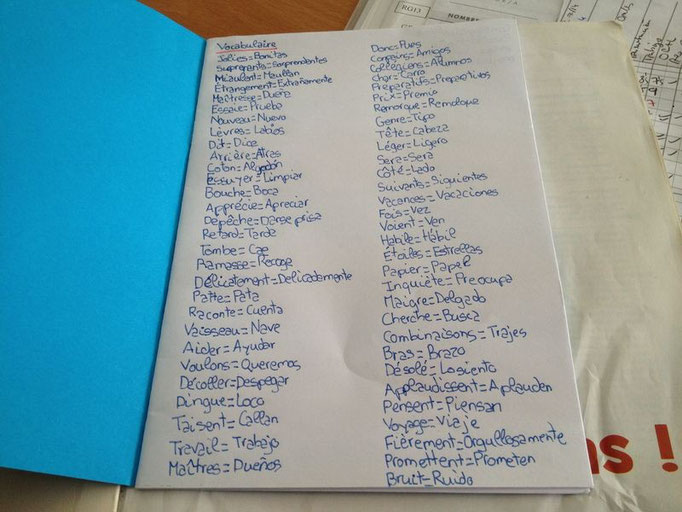 Vocabulaire
Jolies=Bonitas
Surprenants=Sorprendentes
Miaulent=Maullan
Étrangement=Extrañamente
Maîtresse=Dueña
Essaie=Prueba
Nouveau=Nuevo
Lèvres=Labios
Dit=Dice
Arrière=Atras
Coton=Algodón
Essuyer=Limpiar
Bouche=Boca
Apprécie=Apreciar
Dépêche=Darse prisa
Retard=Tarde
Tombe=Cae
Ramasse=Recoge
Délicatement=Delicademente
Patte=Pata
Raconte=Cuenta
Vaisseau=Nave
Aider=Ayudar
Voulons=Queremos
Décoller=Despegar
Dingue=Loco
Taisent=Callan
Travail=Trabajo
Maîtres=Dueños
Donc=Pues
Copains=Amigos
Collégiens=Alumnos
Char=Carro
Préparatifs=Preparativos
Prix=Premio
Remorque=Remolque
Genre=Tipo
Tête=Cabeza
Léger=Ligero
Sera=Será
Côté=Lado
Suivants=Siguientes
Vacances=Vacaciones
Fois=Vez
Voient=Ven
Habile=Hábil
Étoiles=Estrellas
Papier=Papel
Inquiète=Preocupa
Maigre=Delgado
Cherche=Busca
Combinaisons=Trajes
Bras=Brazo
Désolé=Lo siento
Applaudissent=Applauden
Pensent=Piensan
Voyage=Viaje
Fièrement=Orgullosamente
Promettent=Prometen
Bruit=Ruido
RG13
NOMBRE
ns !